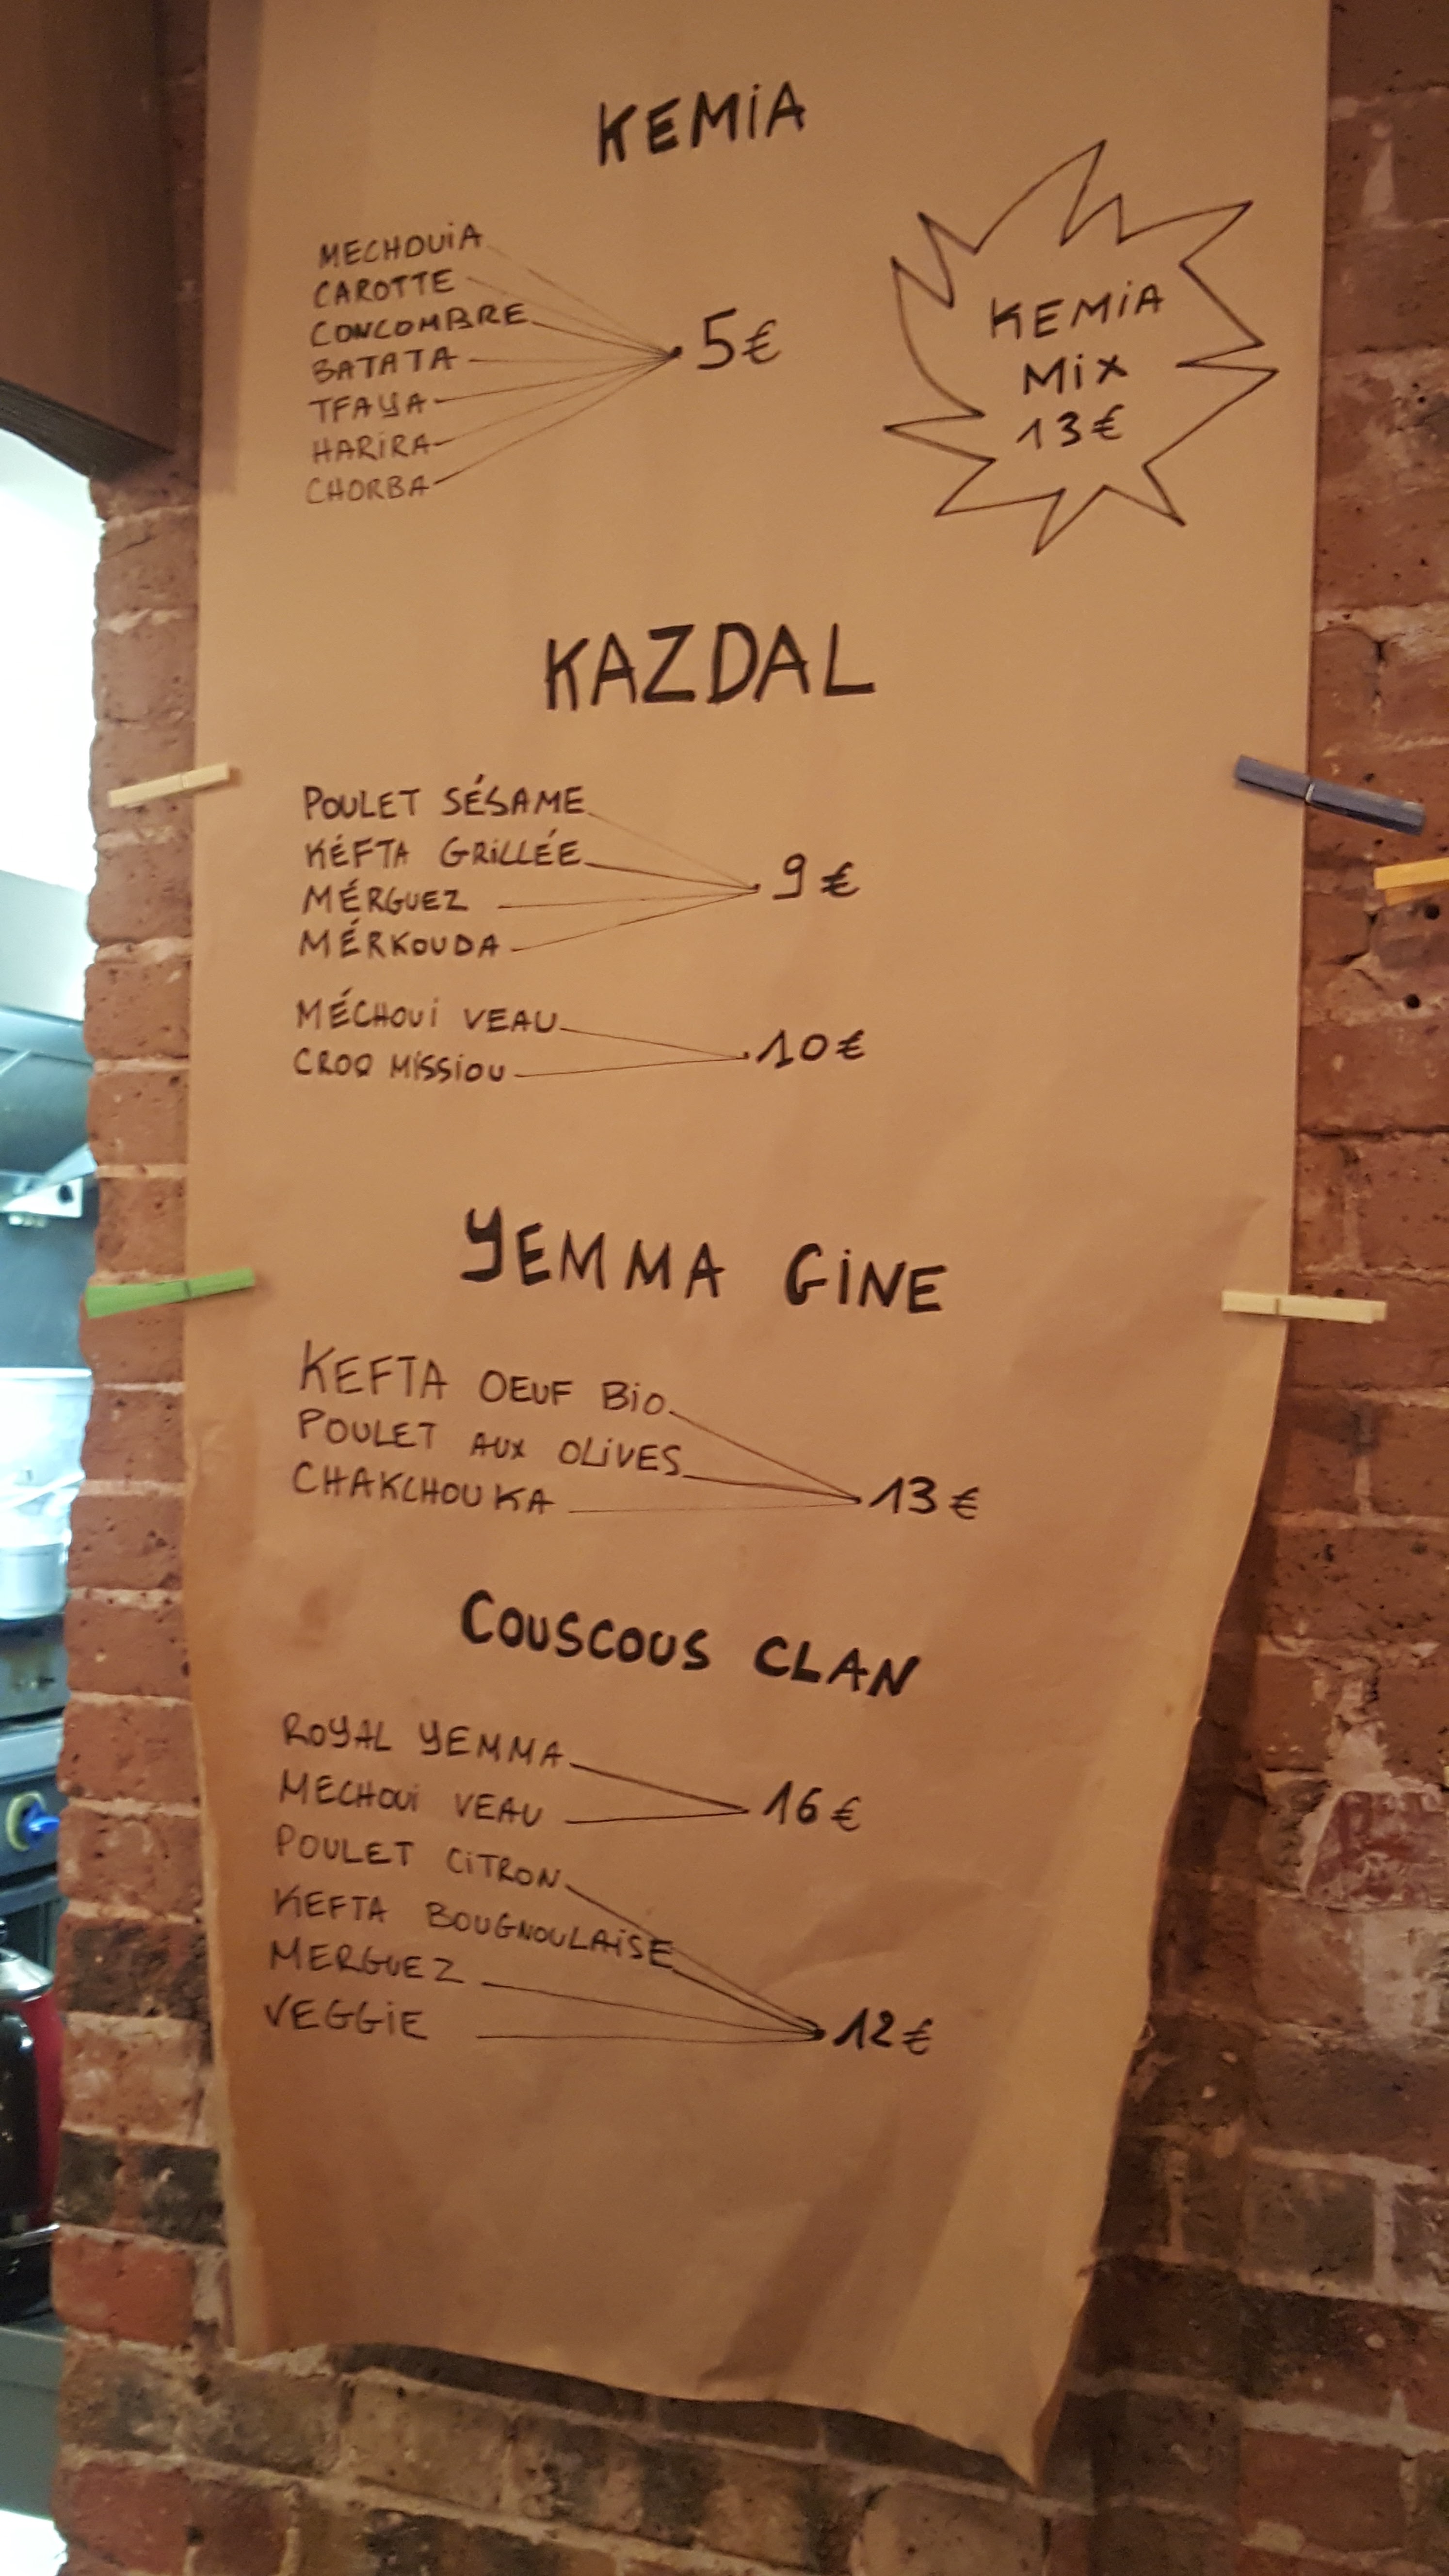 KEMiA
MECHOUiA
CAROTTE
CONCOMBRE
BATATA
TFAYA
HARiRA
CHORBA
5€
KEMiA
MiX
13€
KAZDAL
POULET SÉSAME
KÉFTA GRiLLÉE
MÉRGUEZ
MÉRKOUDA
9€
MÉCHOUi VEAU
CROQ MiSSiOU
10€
YEMMA GiNE
KEFTA OEUF BiO
POULET AUX OLiVES
CHAKCHOUKA
13€
COUSCOUS CLAN
ROYAL YEMMA
MECHOUi VEAU
16€
POULET CiTRON
KEFTA BOUGNOULAiSE
MERGUEZ
VEGGiE
12€